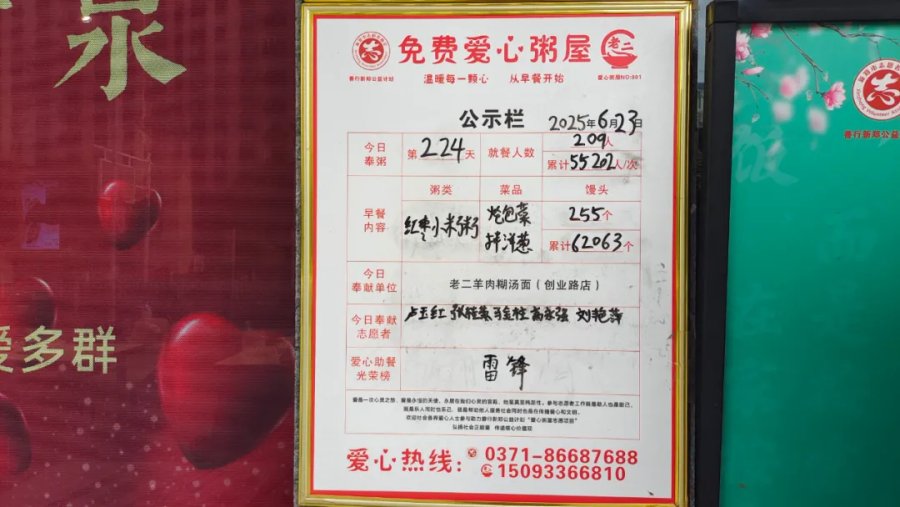 泉
爱多群
免费爱心粥屋
老二
善行新郑公益计划
温暖每一颗心 从早餐开始
爱心粥屋NO:001
公示栏 2025年6月23日
今日奉粥 第224天 就餐人数 209人
累计55202人/次
粥类 菜品 馒头
早餐内容 红枣小米粥 炝包菜 拌洋葱 255个
累计62063个
今日奉献单位 老二羊肉糊汤面（创业路店）
今日奉献志愿者 卢玉红 高永强 刘艳萍
爱心助餐光荣榜 雷锋
弘扬社会正能量 传递核心价值观
爱心热线： 0371-86687688
15093366810
志
善行新郑公益